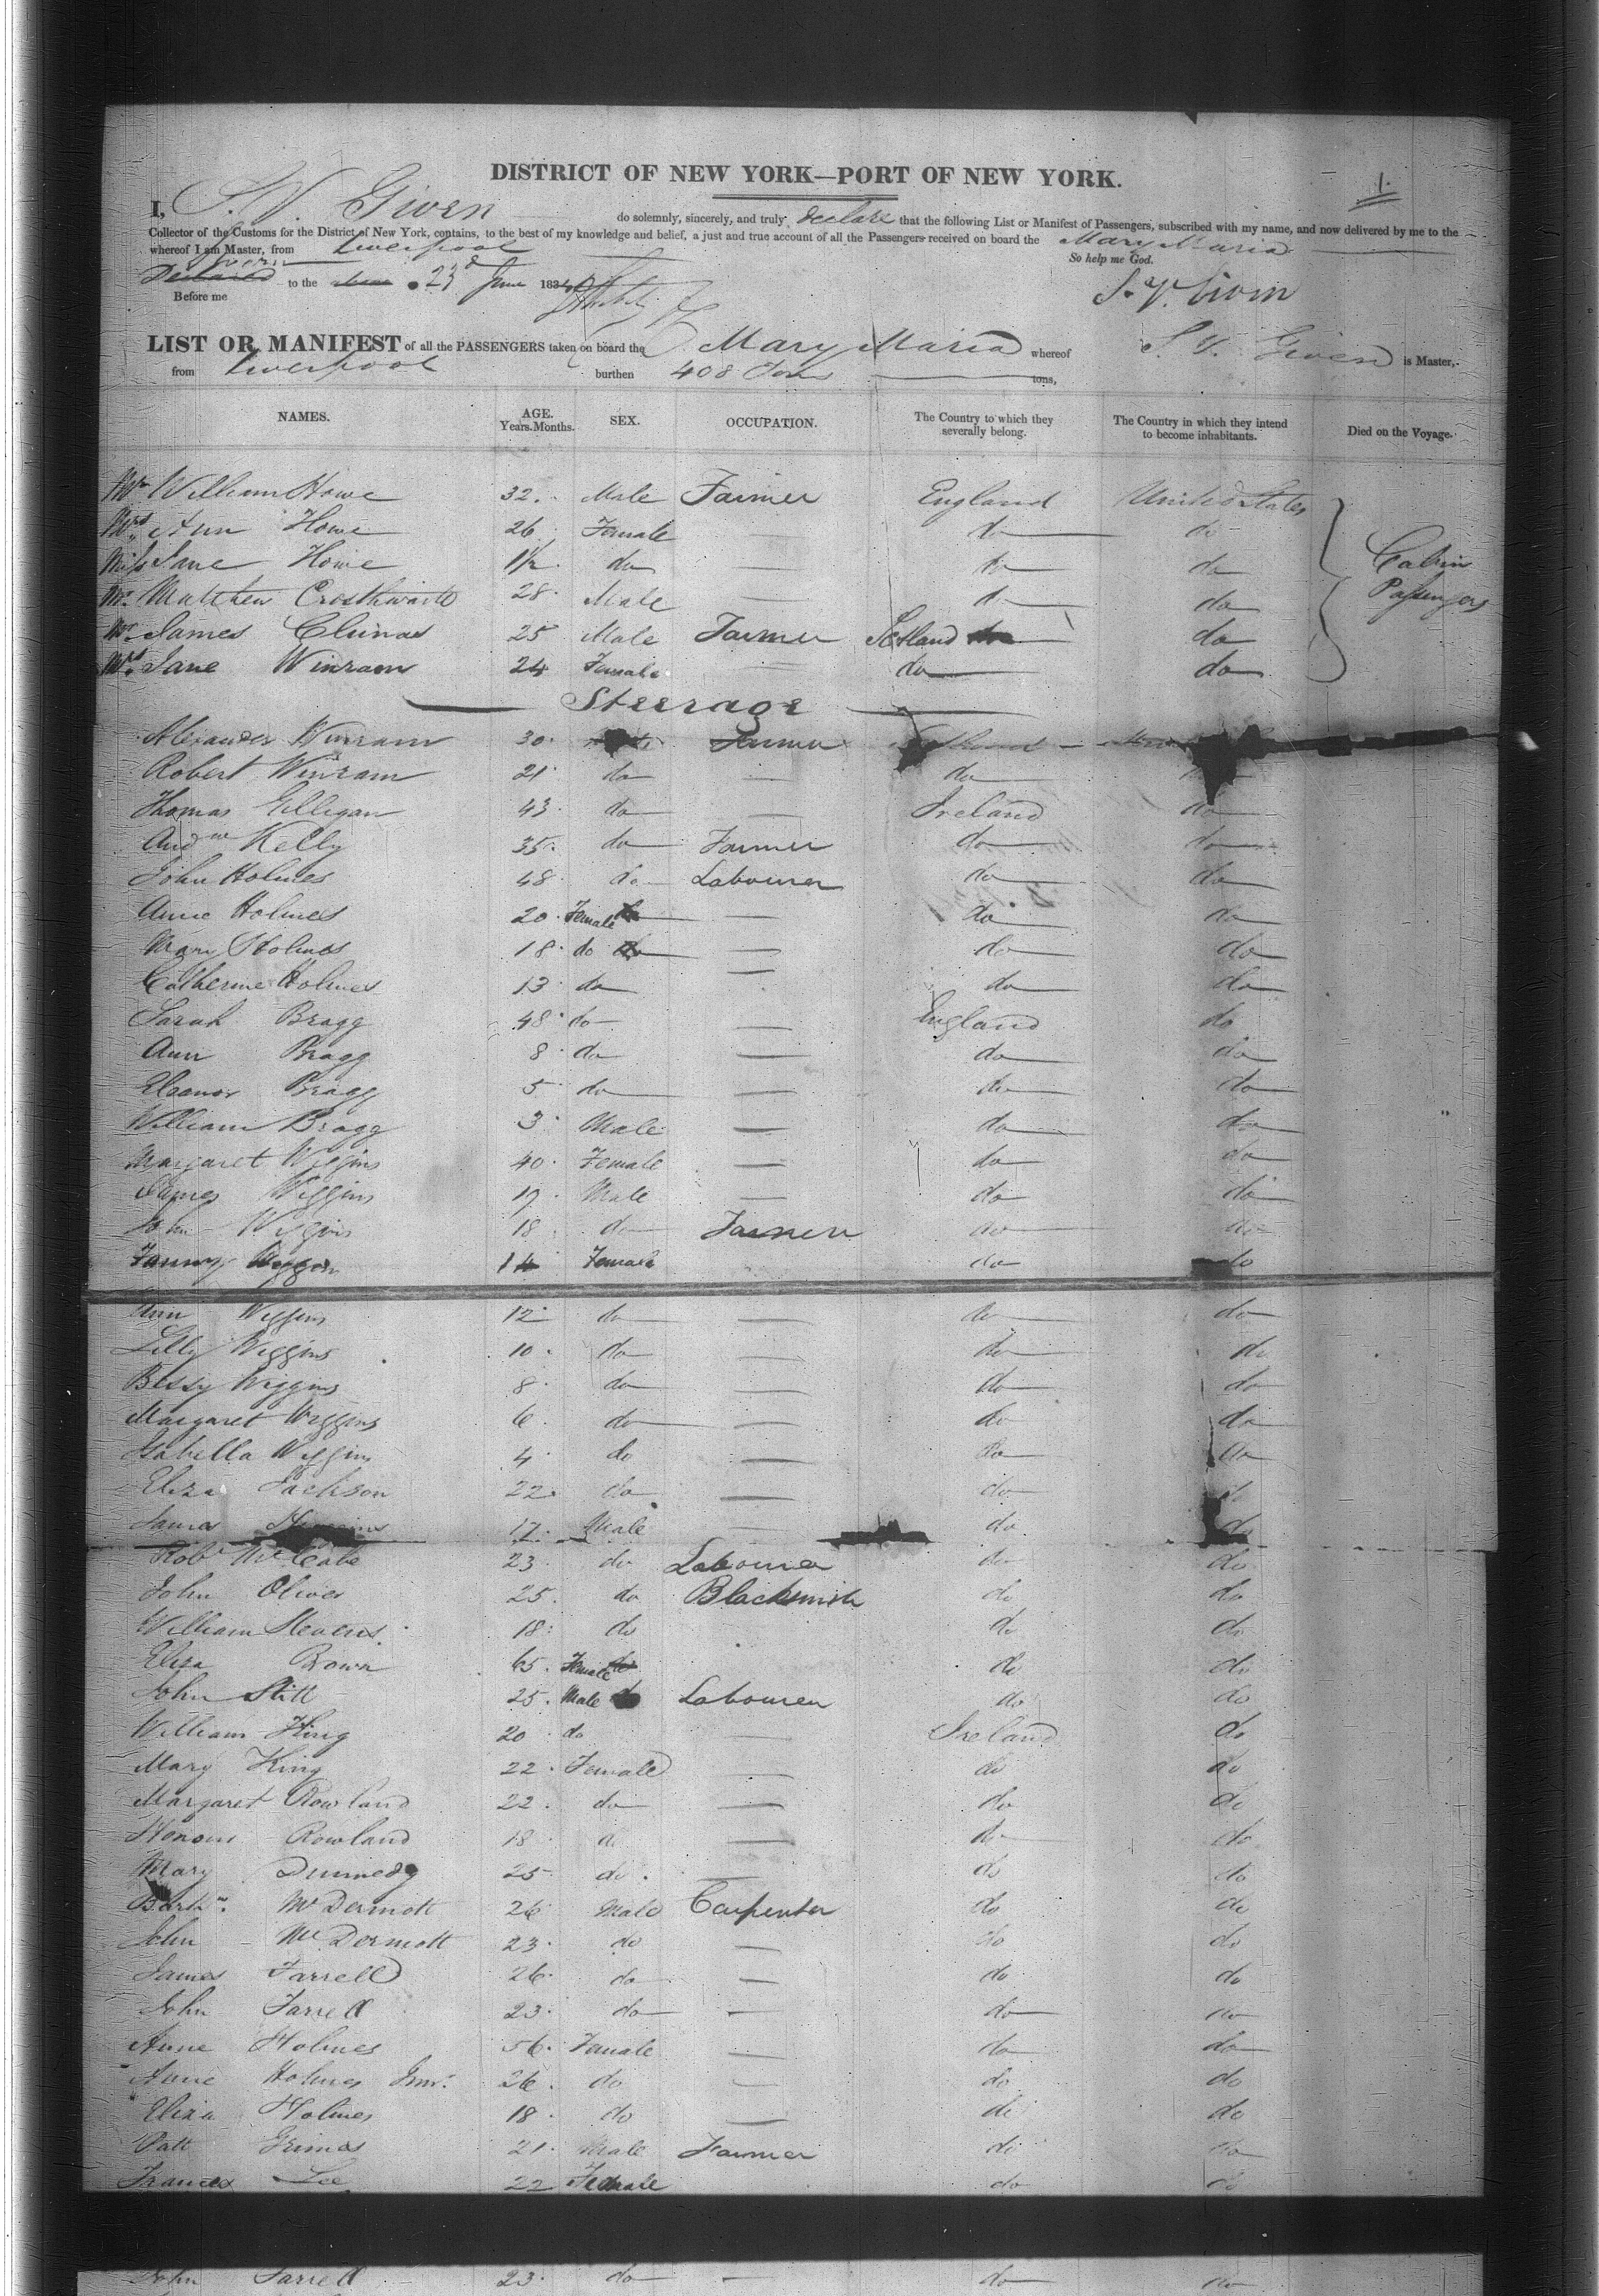 1.
DISTRICT OF NEW YORK—PORT OF NEW YORK.
I, S. V. Given do solemnly, sincerely, and truly declare that the following List or Manifest of Passengers, subscribed with my name, and now delivered by me to the
Collector of the Customs for the District of New York, contains, to the best of my knowledge and belief, a just and true account of all the Passengers received on board the Mary Maria
whereof I am Master, from Liverpool So help me God.
to the 23d June 183 S. V. Given
Before me
LIST OR MANIFEST of all the PASSENGERS taken on board the Mary Maria whereof S. V. Given is Master,
from Liverpool burthen 408 Tons tons,
NAMES. AGE. Years. Months. SEX. OCCUPATION. The Country to which they severally belong. The Country in which they intend to become inhabitants. Died on the Voyage.
Mr William Howe 32. Male Farmer England United States
Mrs Ann Howe 26. Female — do do
Miss Jane Howe 1½ do — do do Cabin
Mr. Matthew Crosthwaite 28. Male — do do Passengers
Mr. James Clunas 25 Male Farmer Scotland do
Mrs. Jane Winram 24 Female — do do
Steerage
Alexander Winram 30. Farmer
Robert Winram 21 do — do
Thomas Gilligan 43. do — Ireland do
Andw Kelly 35. do Farmer do do
John Holmes 48 do Labourer do do
Anne Holmes 20. Female — do do
Mary Holmes 18. do — do do
Catherine Holmes 13. do — do do
Sarah Bragg 48. do — England do
Ann Bragg 8. do — do do
Eleanor Bragg 5. do — do do
William Bragg 3. Male — do do
Margaret Wiggins 40. Female — do do
James Wiggins 19. Male — do do
John Wiggins 18. do Farmer do do
Fanny 14 Female do do
Ann Wiggins 12. do — do do
Lilly Wiggins 10. do — do do
Bessy Wiggins 8. do — do do
Margaret Wiggins 6. do — do do
Isabella Wiggins 4. do — do do
Eliza Jackson 22. do — do do
James 17. Male — do do
Robt McCabe 23. do Labourer do do
John Oliver 25. do Blacksmith do do
William Stevens 18. do do do
Eliza Brown 65. Female do do
John Stitt 25. Male Labourer do do
William King 20. do — Ireland do
Mary King 22. Female — do do
Margaret Rowland 22. do — do do
Rowland 18 — do do
Mary 25 do. — do do
McDermott 26 Male Carpenter do do
John McDermott 23. do — do do
James Farrell 26. do — do do
John Farrell 23. do — do do
Anne Holmes 56. Female — do do
Anne Holmes Junr. 26. do — do do
Eliza Holmes 18. do — do do
Patt Grimes 21. Male Farmer do do
Frances Lee 22 Female do do
John Farrell 23. do — do do